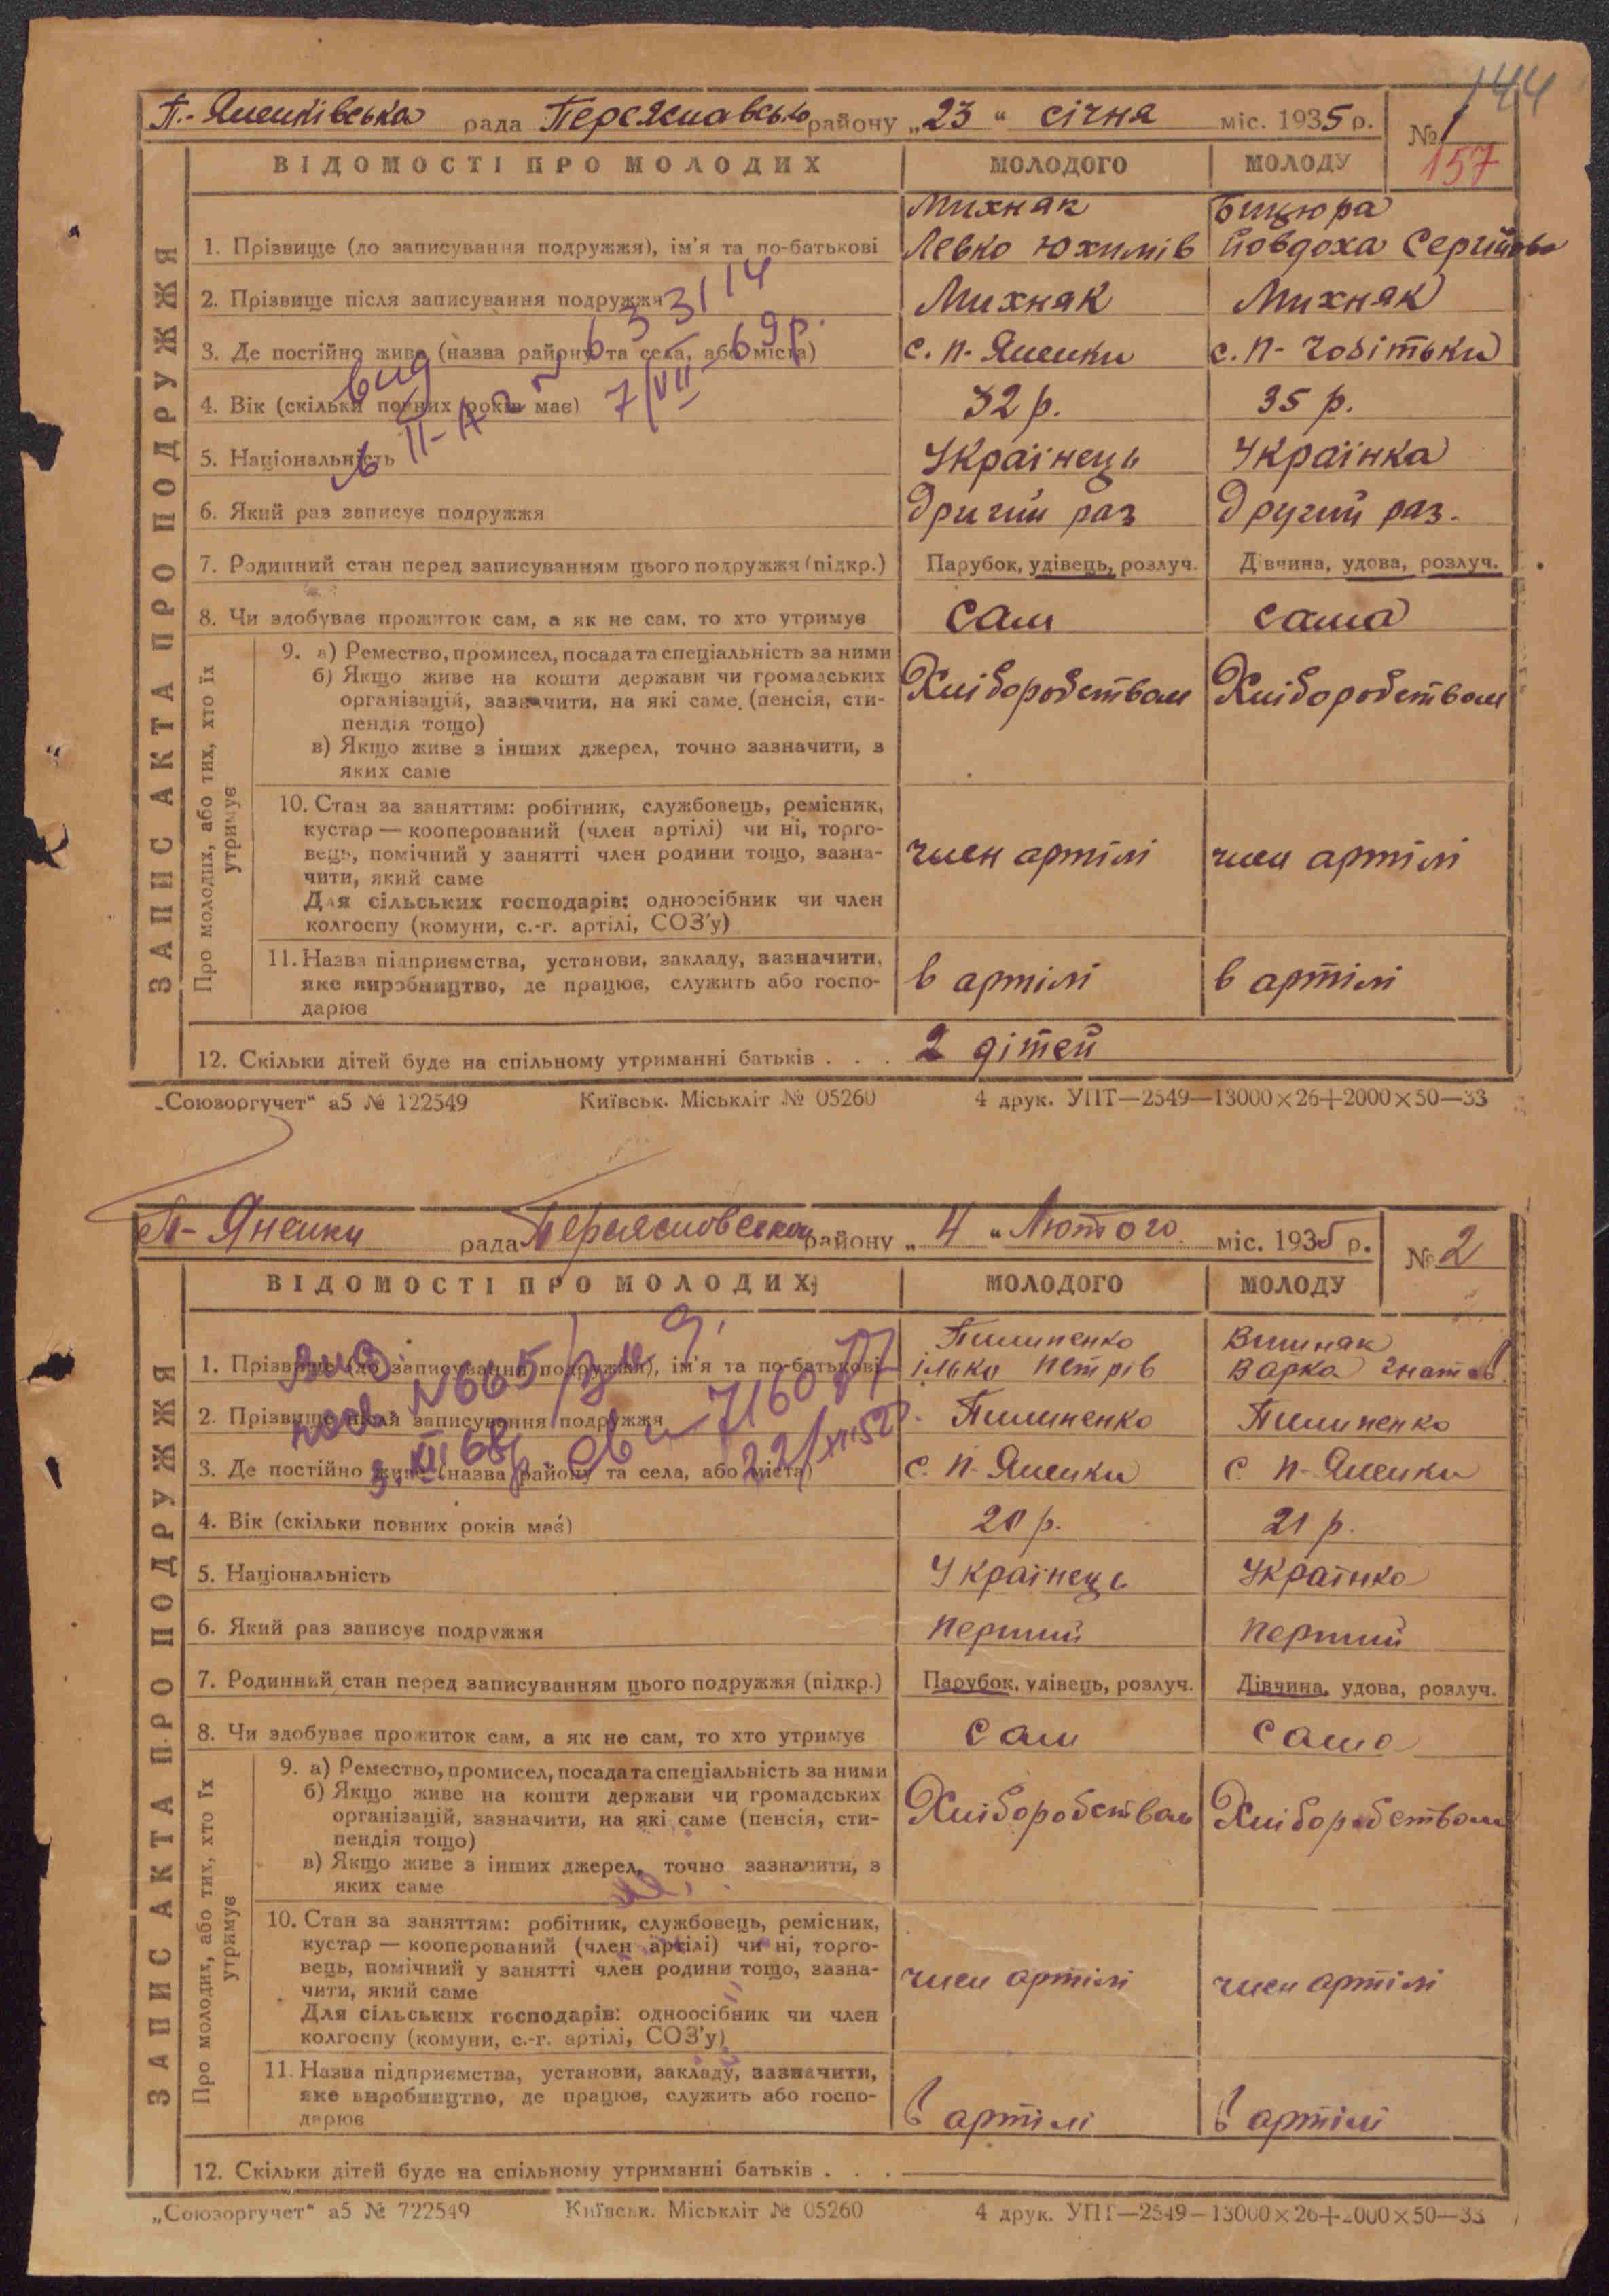 144
П.-Яненківська рада Переяславськ району „23“ січня міс. 1935 р. № 1
157
ВІДОМОСТІ ПРО МОЛОДИХ МОЛОДОГО МОЛОДУ
ЗАПИС АКТА ПРО ПОДРУЖЖЯ
Михняк Бицюра
1. Прізвище (до записування подружжя), ім'я та по-батькові Левко Юхимів Йовдоха Сергійова
2. Прізвище після записування подружжя Михняк Михняк
3. Де постійно живе (назва району та села, або міста) с. П-Яненки с. П-Чобітьки
4. Вік (скільки повних років має) 32 р. 35 р.
5. Національність Українець Українка
6. Який раз записує подружжя Другий раз Другий раз.
7. Родинний стан перед записуванням цього подружжя (підкр.) Парубок, удівець, розлуч. Дівчина, удова, розлуч.
8. Чи здобуває прожиток сам, а як не сам, то хто утримує сам сама
Про молодих, або тих, хто їх утримує
9. а) Ремество, промисел, посада та спеціальність за ними
б) Якщо живе на кошти держави чи громадських
організацій, зазначити, на які саме (пенсія, сти-
пендія тощо)
в) Якщо живе з інших джерел, точно зазначити, з
яких саме
Хліборобством Хліборобством
10. Стан за заняттям: робітник, службовець, ремісник,
кустар — кооперований (член артілі) чи ні, торго-
вець, помічний у занятті член родини тощо, зазна-
чити, який саме
Для сільських господарів: одноосібник чи член
колгоспу (комуни, с.-г. артілі, СОЗ'у)
член артілі член артілі
11. Назва підприємства, установи, закладу, зазначити,
яке виробництво, де працює, служить або госпо-
дарює
в артілі в артілі
12. Скільки дітей буде на спільному утриманні батьків . . . 2 дітей
вид
II-А 2 № 633114
7/VII-69р.
„Союзоргучет“ а5 № 122549 Київськ. Міськліт № 05260 4 друк. УПТ—2549—13000×26+2000×50—33
П-Яненки рада Переясловського району „4“ Лютого міс. 1935 р. № 2
ВІДОМОСТІ ПРО МОЛОДИХ МОЛОДОГО МОЛОДУ
ЗАПИС АКТА ПРО ПОДРУЖЖЯ
Пилипенко Вишняк
1. Прізвище (до записування подружжя), ім'я та по-батькові Ілько Петрів Варка Гнатов
2. Прізвище після записування подружжя Пилипенко Пилипенко
3. Де постійно живе (назва району та села, або міста) с. П-Яненки с. П-Яненки
4. Вік (скільки повних років має) 20 р. 21 р.
5. Національність Українець Українка
6. Який раз записує подружжя перший перший
7. Родинний стан перед записуванням цього подружжя (підкр.) Парубок, удівець, розлуч. Дівчина, удова, розлуч.
8. Чи здобуває прожиток сам, а як не сам, то хто утримує сам сама
Про молодих, або тих, хто їх утримує
9. а) Ремество, промисел, посада та спеціальність за ними
б) Якщо живе на кошти держави чи громадських
організацій, зазначити, на які саме (пенсія, сти-
пендія тощо)
в) Якщо живе з інших джерел, точно зазначити, з
яких саме
Хліборобством Хліборобством
10. Стан за заняттям: робітник, службовець, ремісник,
кустар — кооперований (член артілі) чи ні, торго-
вець, помічний у занятті член родини тощо, зазна-
чити, який саме
Для сільських господарів: одноосібник чи член
колгоспу (комуни, с.-г. артілі, СОЗ'у)
член артілі член артілі
11. Назва підприємства, установи, закладу, зазначити,
яке виробництво, де працює, служить або госпо-
дарює
в артілі в артілі
12. Скільки дітей буде на спільному утриманні батьків . . .
N 665
3.XII 68р.
„Союзоргучет“ а5 № 722549 Київськ. Міськліт № 05260 4 друк. УПТ—2549—13000×26+2000×50—33